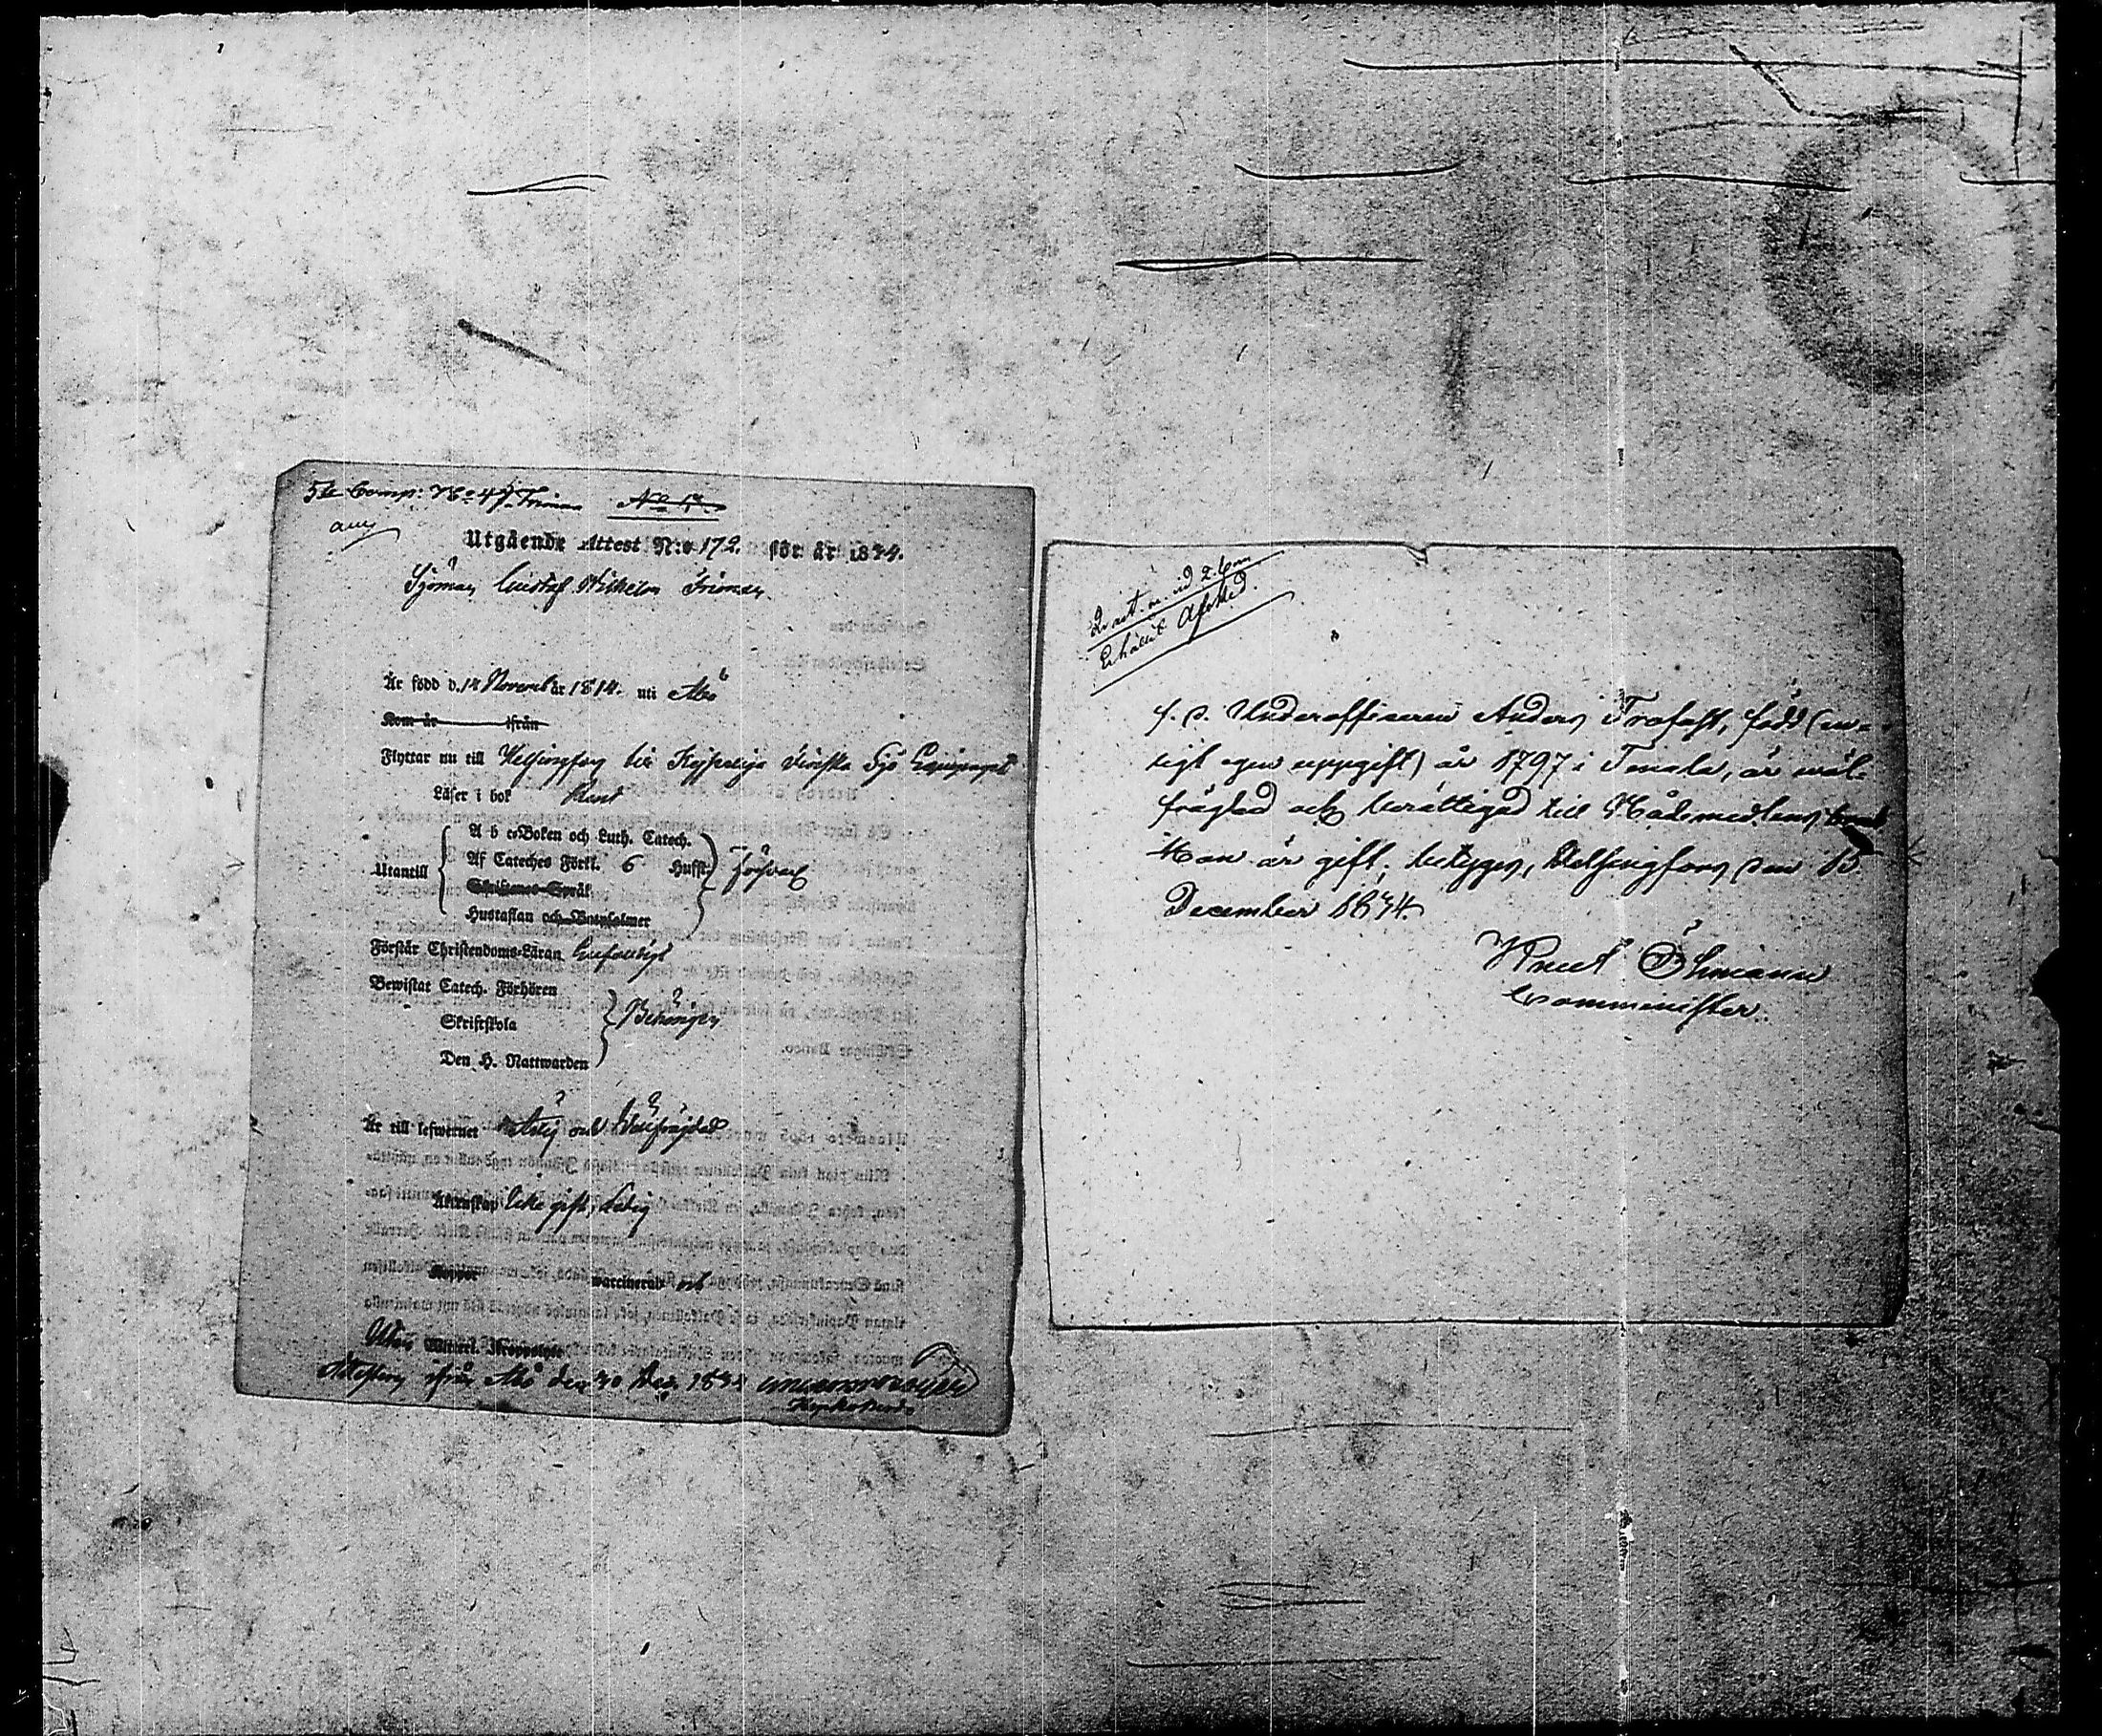 5te Comp: No 47 Friman No 1.
Utgående Attest N:o 172. för år 1834.
Sjöman Gustaf Wilhelm Friman
Är född d. 14 Novemb år 1814. uti Åbo
Kom år ifrån
Flyttar nu till Helsingfors till Kejserliga Finska Sjö Equipaget
Läser i bok Rent
Utantill
A b c-Boken och Luth. Catech.
Af Cateches Förkl. 6 Hufst.
Skriftenes Språk
Hustaflan och Botpsalmer
Förstår Christendoms-Läran Enfaldigt
Bewistat Catech. Förhören
Skriftskola
Behörigen
Den H. Nattwarden
Är till lefwernet Ärlig och Välfrägdad
Äktenskap Icke gift, ledig
Koppor vaccinerad och
Attesteras ifrån Åbo den 30 Dec. 1834
Erhållit Afsked.
f. d. Underofficeren Anders Trofast, född (en-
ligt egen uppgift) år 1797 i Tenala, är wäl-
frägdad och berättigad till Nådemedlens bruk
Han är gift; betygas, Helsingfors den 15
December 1834.
Knut Öhmann
Comminister.